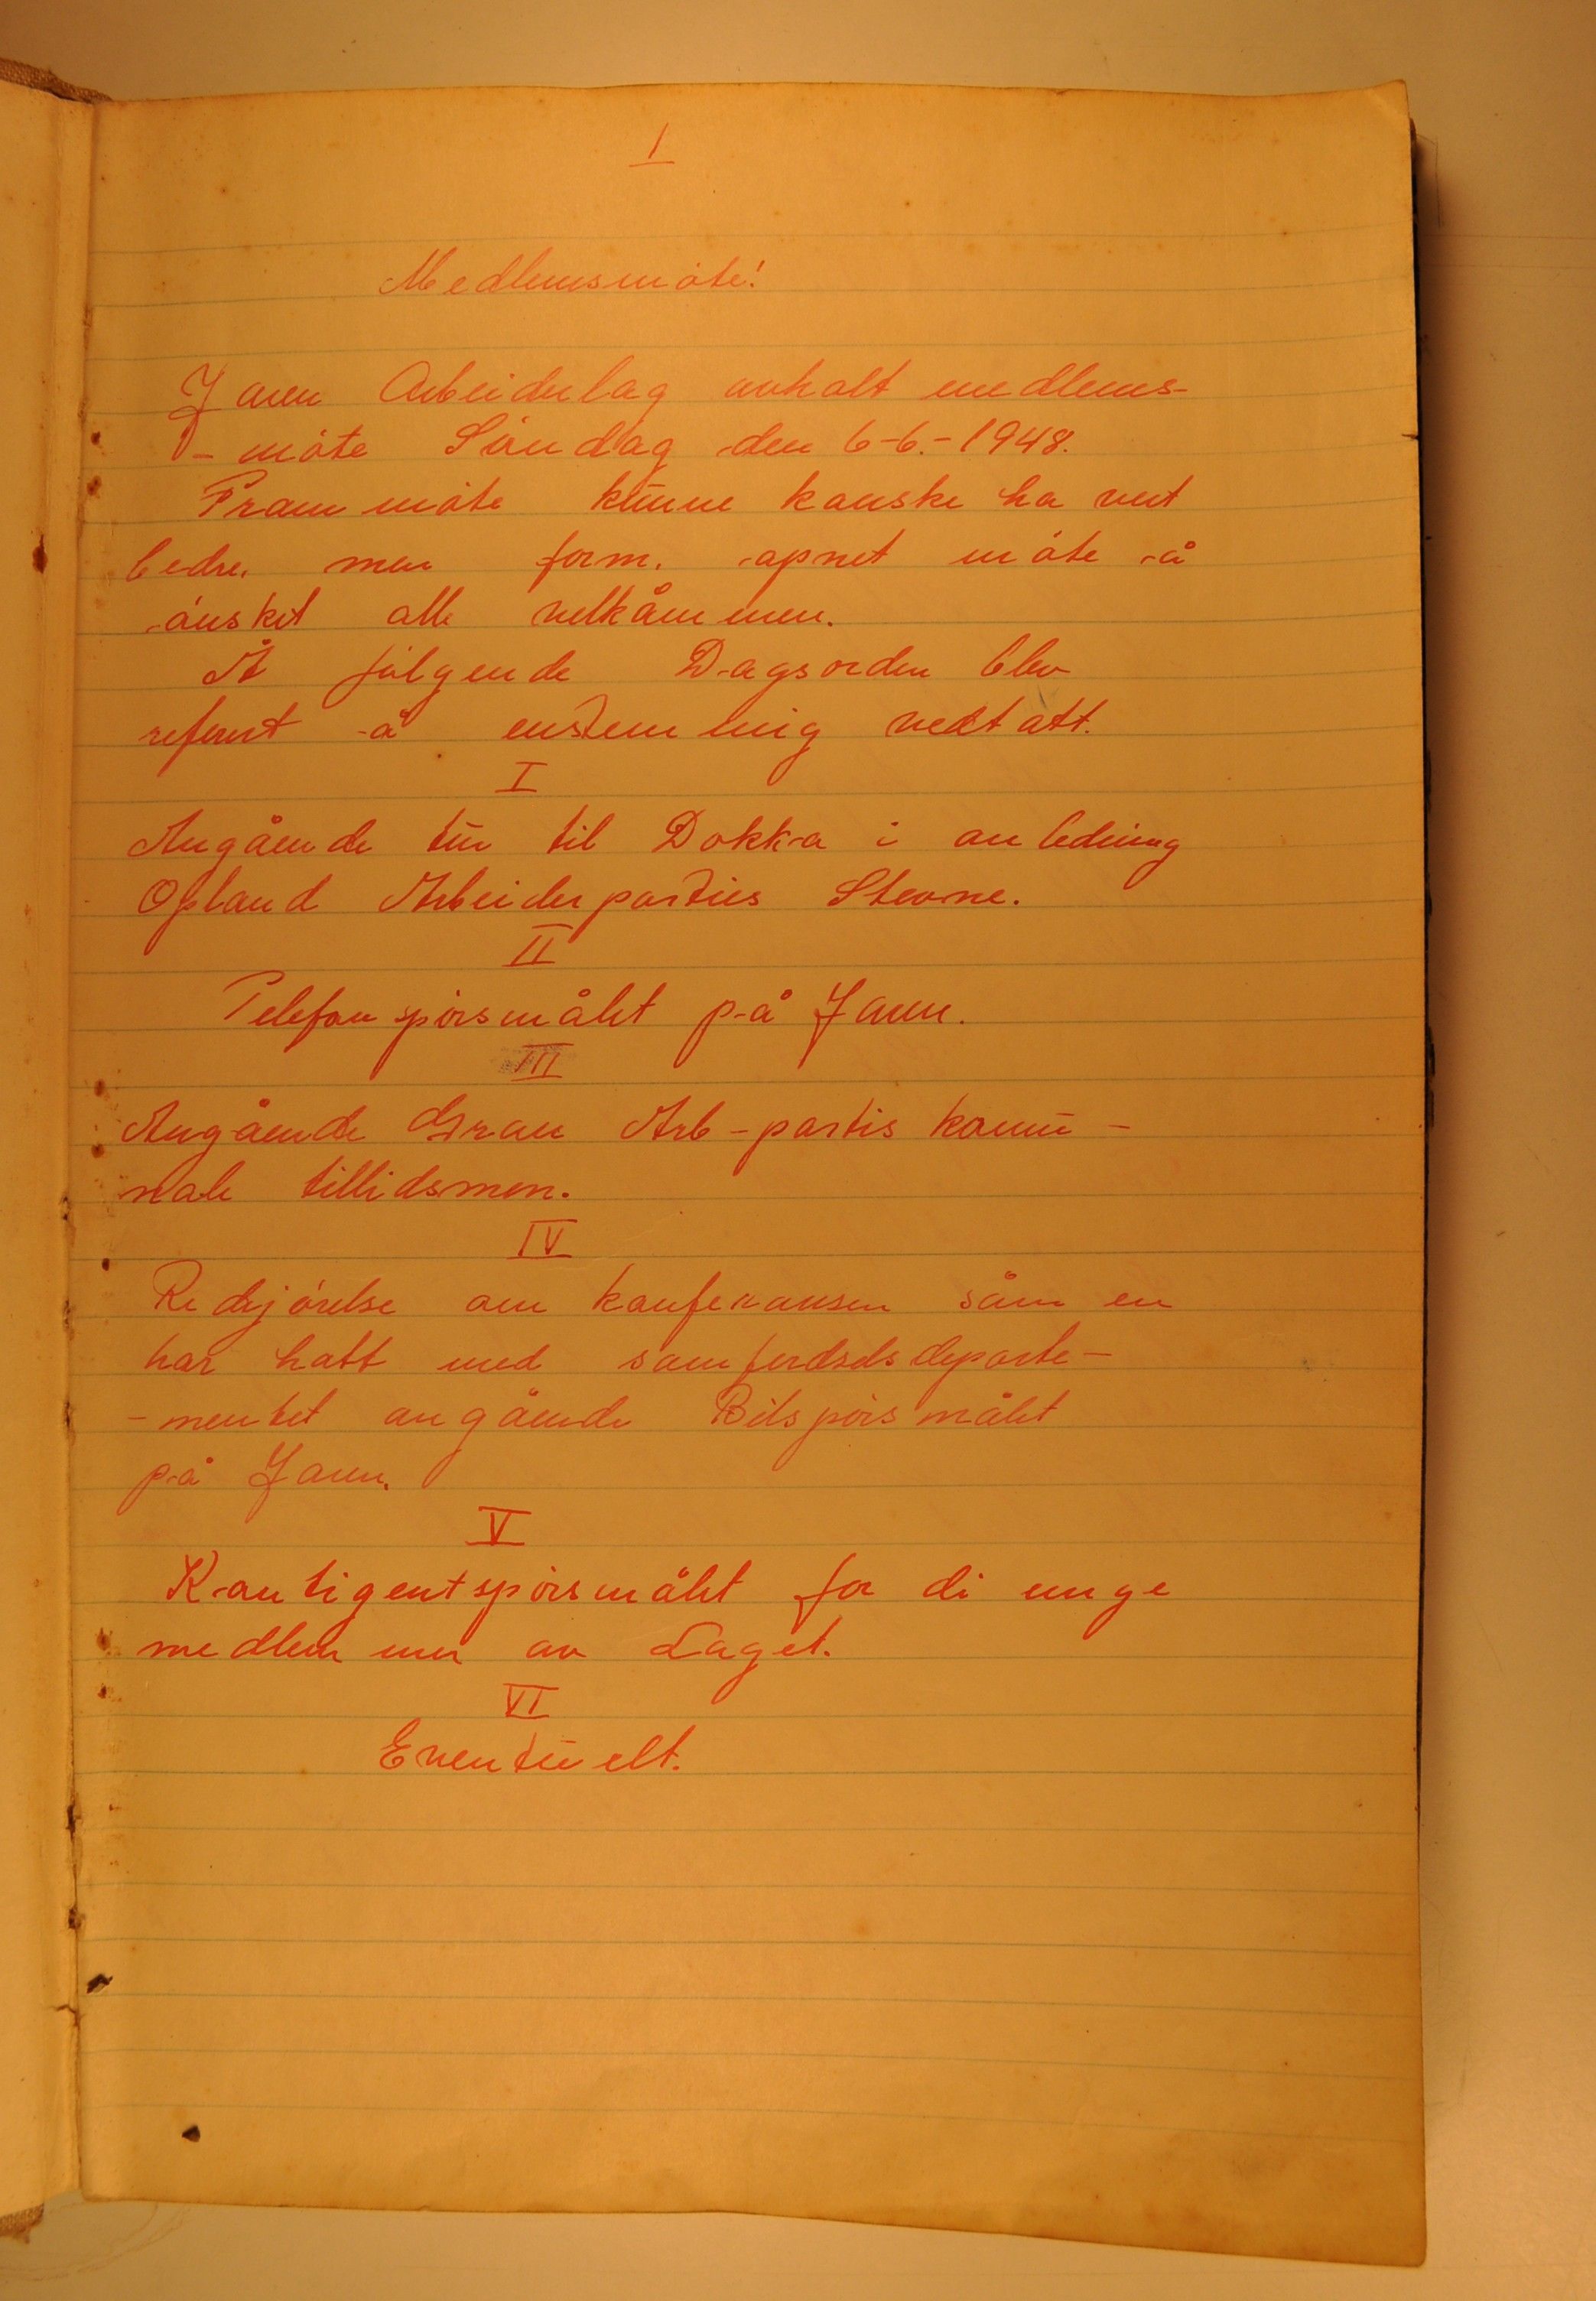 1
Medlemsmöte!
Jaren Arbeiderlag avholt medlems-
- möte Söndag den 6-6.-1948.
Frammöte kunne kanske ha vert
bedre. men form. apnet möte å
önsket alle velkåmmen.
Å fölgende Dagsorden blev
referert å enstemmig vedtatt.
I
Angående tur til Dokka i anledning
Opland Arbeiderparties Stevne.
II
Telefonspörsmålet på Jaren.
III
Angående Gran Arb-partis komu-
nale tillidsmen.
IV
Redejörelse om konferansen såm en
har hatt med samferdselsdeparte-
-mentet angående Bilspörsmålet
på Jaren.
V
Kontigentspörsmålet for di unge
medlemmer av Laget.
VI
Eventuelt.